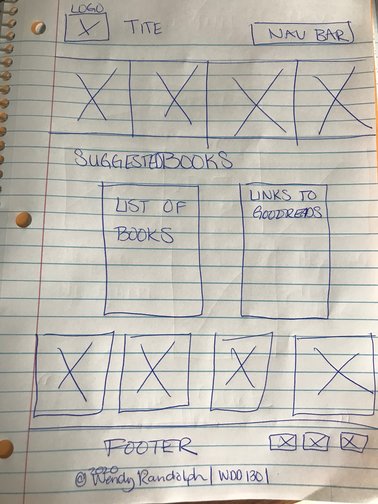 LOGO
TITE
NAV BAR
SUGGESTEDBOOKS
LIST OF
BOOKS
LINKS TO
GOODREADS
FOOTER
@2020 Wendy Randolph | WDD 130 |